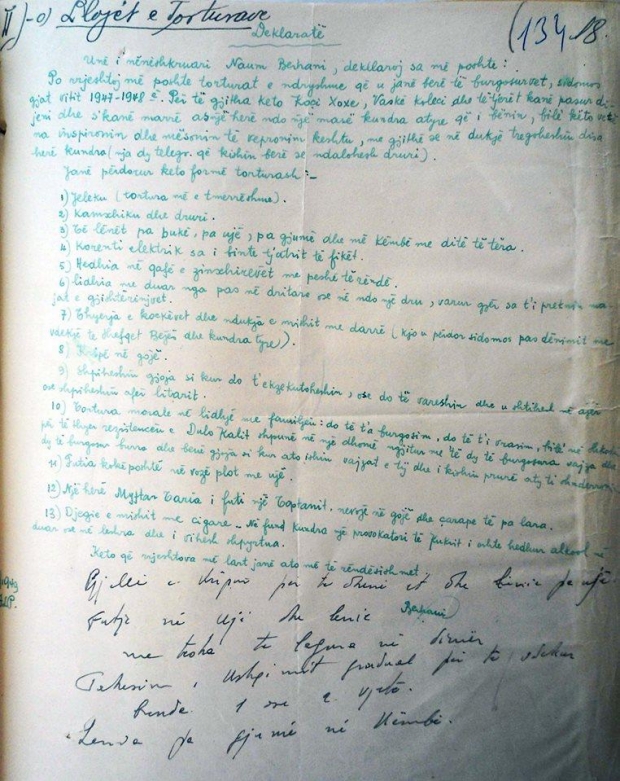 II)-o) Llojët e Torturave
Deklaratë
(134 18.
Unë i nënëshkruari Naum Bezhani, dekllaroj sa më poshte:
Po rrjeshtoj më poshte torturat e ndryshme që u janë berë të burgosurvet, sidomos
gjat vitit 1947-1948ë. Për të gjitha keto Koçi Xoxe, Vaskë Koleci dhe të tjerët kanë pasur di-
jeni dhe s'kanë marrë asnjë herë ndo një masë kundra atyre që i bënin, bile këto vetë
na inspironin dhe mësonim të vepronim keshtu, me gjithë se në dukje tregoheshin disa
herë kundra (nja dy telegr. që kishin berë se ndalohesh druri).
Janë përdorur keto formë torturash:-
1) Jeleku (tortura më e tmerrëshme).
2) Kamzhiku dhe druri.
3) Të lënët pa bukë, pa ujë, pa gjumë dhe më këmbë me ditë të tëra.
4) Korenti elektrik sa i binte t'jatrit të fikët.
5) Hedhia në qafë e zinxhirëvet me peshë të rëndë.
6) lidhia me duar nga pas në dritare ose në ndo një dru, varur gjër sa t'i pretnin ma-
jat e gjishtërinjvet.
7) Thyerja e kockëvet dhe ndukja e mishit me darrë (kjo u përdor sidomos pas dënimit me
vdekje të Shefqet Bejës dhe kundra tyre).
8) Kripë në gojë.
9) Shpiheshin gjoja si kur do t'ekzekutoheshin, ose do të vareshin dhe u shtihesh në ajër
ose shpiheshin afër litarit.
10) Tortura morale në lidhje me familjen: do të t'a burgosim, do të t'i vrasim,
për të thyer rezistencën e Dulo Kalit shpunë në një dhomë ngjitur me të dy të burgosura vajza dhe
dy të burgosur burra dhe bënë gjoja si kur ato ishin vajzat e tij dhe i kishin prurë aty t'i
11) Futia kokë poshtë në vozë plot me ujë.
12) Një herë Myftar Taria i futi një Toptanit. nevojë në gojë dhe çarape të pa lara.
13) Djegie e mishit me cigare. - Në fund kundra një provokatori të Fukrit i është hedhur alkool në
duar ose në leshra dhe i vihesh shpyrtua.
Keto që rrjeshtova më lart janë ato më të rëndësishmet.
Gjellë e kripur për të dhënë et dhe lënie pa ujë
Bezhani
Futje në ujë dhe lënie
me rroba të lagura në dimër
i ushqimit gradual për të
1 ose 2 vjeta.
Lënia pa gjumë në këmbë.